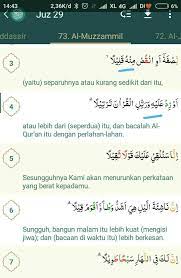 14:43 2,36K/d XL 4G 6%
Juz 29
ddassir 73. Al-Muzzammil 72. A
3
نِّصْفَهُ أَوِ انْقُصْ مِنْهُ قَلِيْلًا
(yaitu) separuhnya atau kurang sedikit dari itu,
4
أَوْ زِدْ عَلَيْهِ وَرَتِّلِ الْقُرْاٰنَ تَرْتِيْلًا
atau lebih dari (seperdua) itu, dan bacalah Al-
Qur'an itu dengan perlahan-lahan.
5
اِنَّا سَنُلْقِيْ عَلَيْكَ قَوْلًا ثَقِيْلًا
Sesungguhnya Kami akan menurunkan perkataan
yang berat kepadamu.
6
اِنَّ نَاشِئَةَ الَّيْلِ هِيَ اَشَدُّ وَطْـًٔا وَّاَقْوَمُ قِيْلًا
Sungguh, bangun malam itu lebih kuat (mengisi
jiwa); dan (bacaan di waktu itu) lebih berkesan.
7
اِنَّ لَكَ فِى النَّهَارِ سَبْحًا طَوِيْلًا